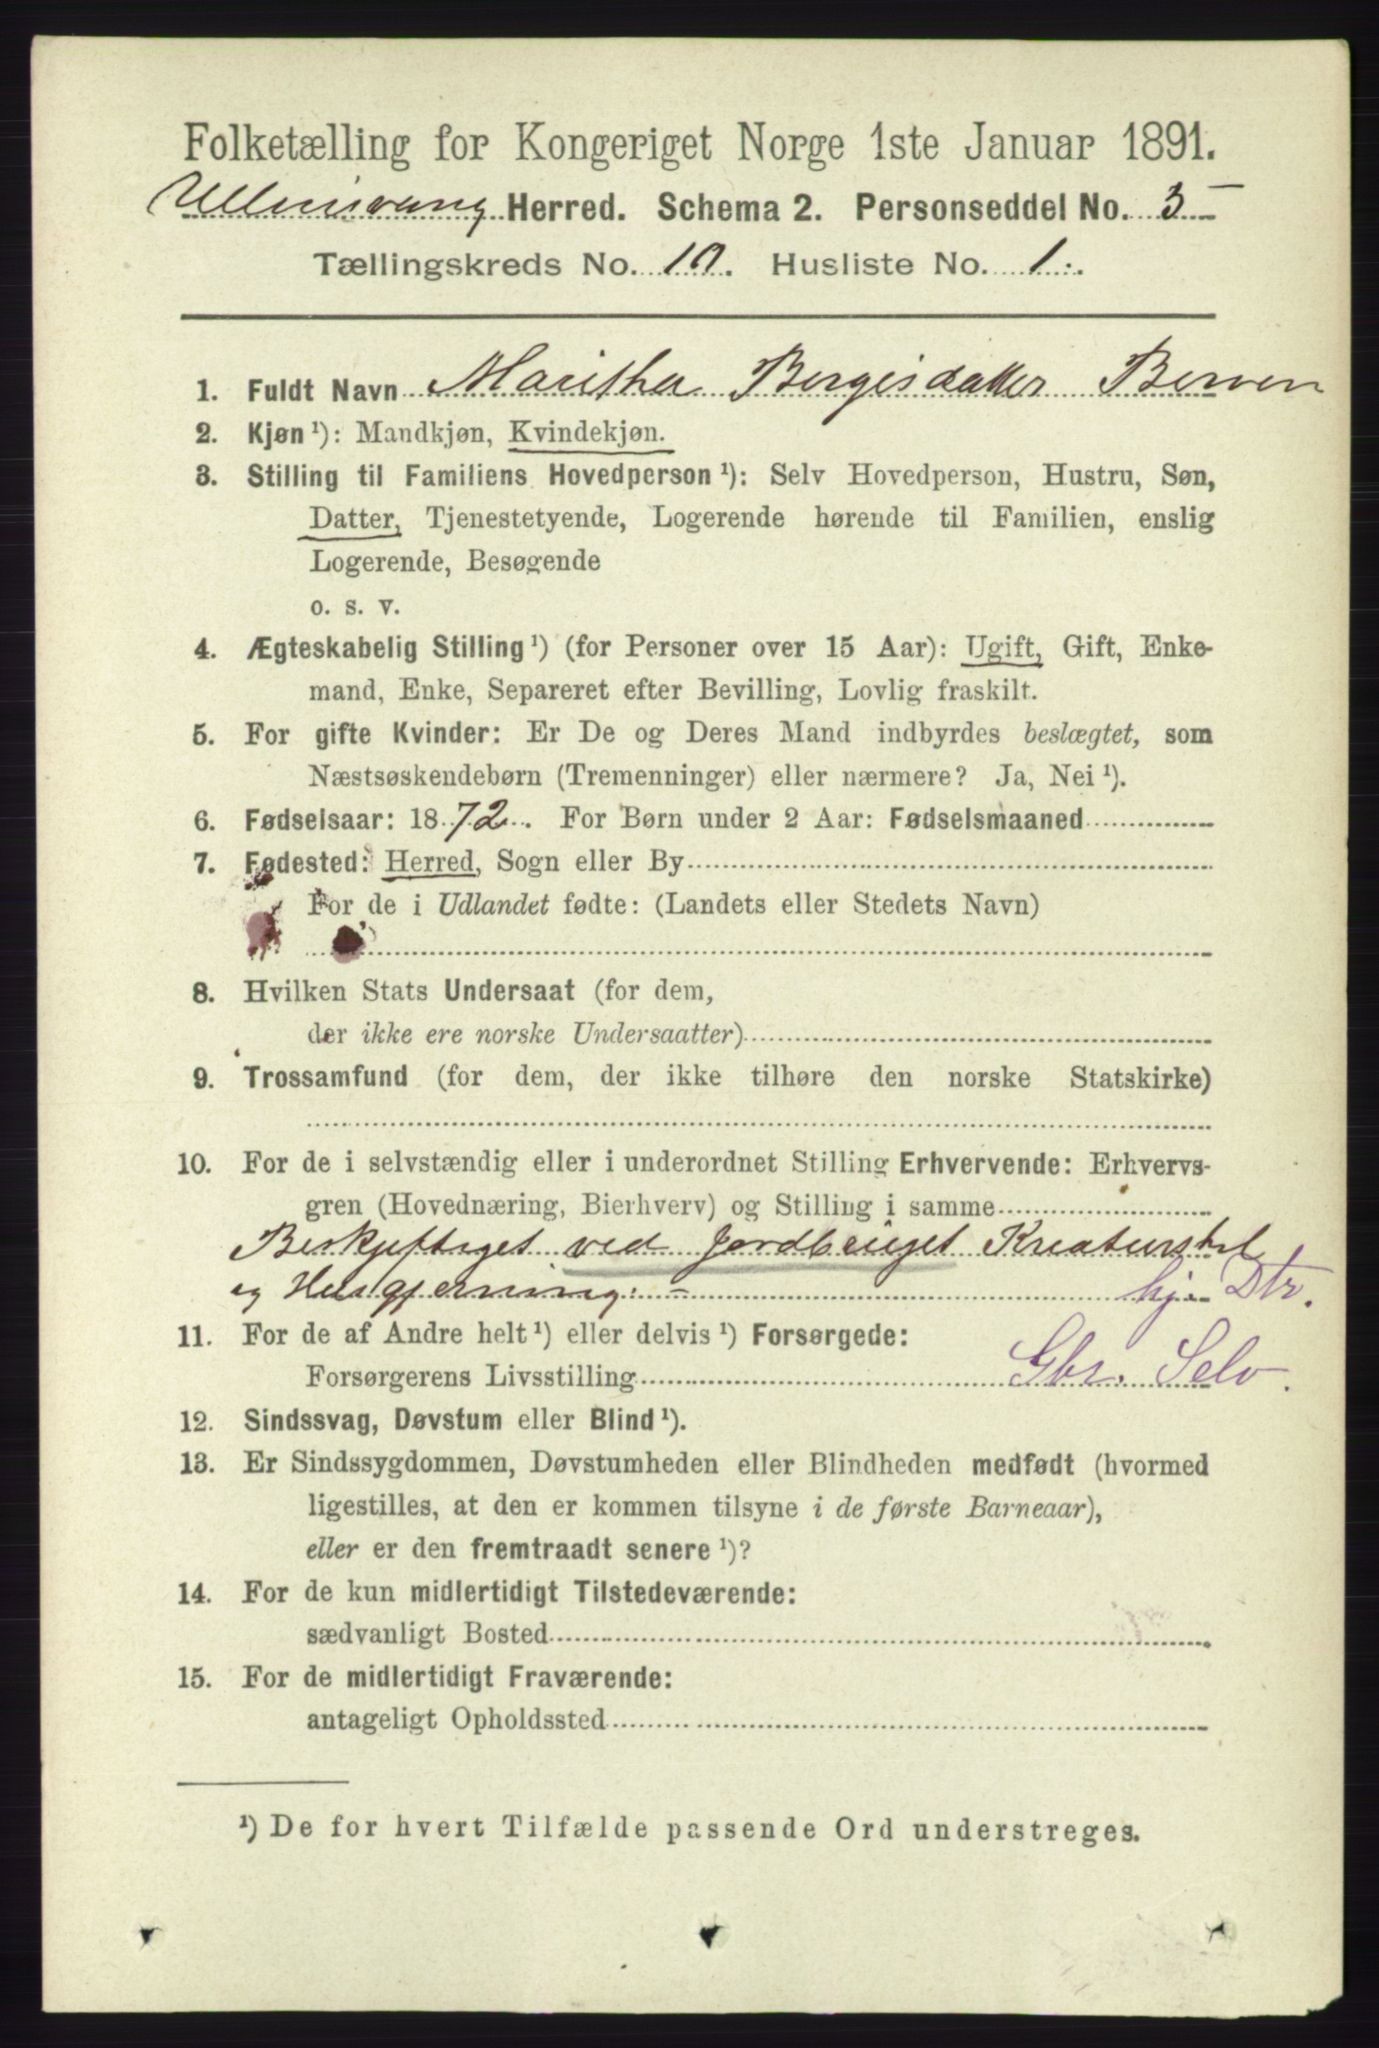 Folketælling for Kongeriget Norge 1ste Januar 1891.
Ullensvang Herred. Schema 2. Personseddel No. 5
Tællingskreds No. 10. Husliste No. 1.
1. Fuldt Navn Maritha Bergesdatter Berven
2. Kjøn ¹): Mandkjøn, Kvindekjøn.
3. Stilling til Familiens Hovedperson ¹): Selv Hovedperson, Hustru, Søn,
Datter, Tjenestetyende, Logerende hørende til Familien, enslig
Logerende, Besøgende
o. s. v.
4. Ægteskabelig Stilling ¹) (for Personer over 15 Aar): Ugift, Gift, Enke-
mand, Enke, Separeret efter Bevilling, Lovlig fraskilt.
5. For gifte Kvinder: Er De og Deres Mand indbyrdes beslægtet, som
Næstsøskendebørn (Tremenninger) eller nærmere? Ja, Nei ¹).
6. Fødselsaar: 1872. For Børn under 2 Aar: Fødselsmaaned
7. Fødested: Herred, Sogn eller By
For de i Udlandet fødte: (Landets eller Stedets Navn)
8. Hvilken Stats Undersaat (for dem,
der ikke ere norske Undersaatter)
9. Trossamfund (for dem, der ikke tilhøre den norske Statskirke)
10. For de i selvstændig eller i underordnet Stilling Erhvervende: Erhvervs-
gren (Hovednæring, Bierhverv) og Stilling i samme
Beskjeftiget ved Jordbruget Kreaturstel
og Husgjerning: hj. Dtr.
11. For de af Andre helt ¹) eller delvis ¹) Forsørgede:
Forsørgerens Livsstilling Gbr. Selv.
12. Sindssvag, Døvstum eller Blind ¹).
13. Er Sindssygdommen, Døvstumheden eller Blindheden medfødt (hvormed
ligestilles, at den er kommen tilsyne i de første Barneaar),
eller er den fremtraadt senere ¹)?
14. For de kun midlertidigt Tilstedeværende:
sædvanligt Bosted
15. For de midlertidigt Fraværende:
antageligt Opholdssted
¹) De for hvert Tilfælde passende Ord understreges.